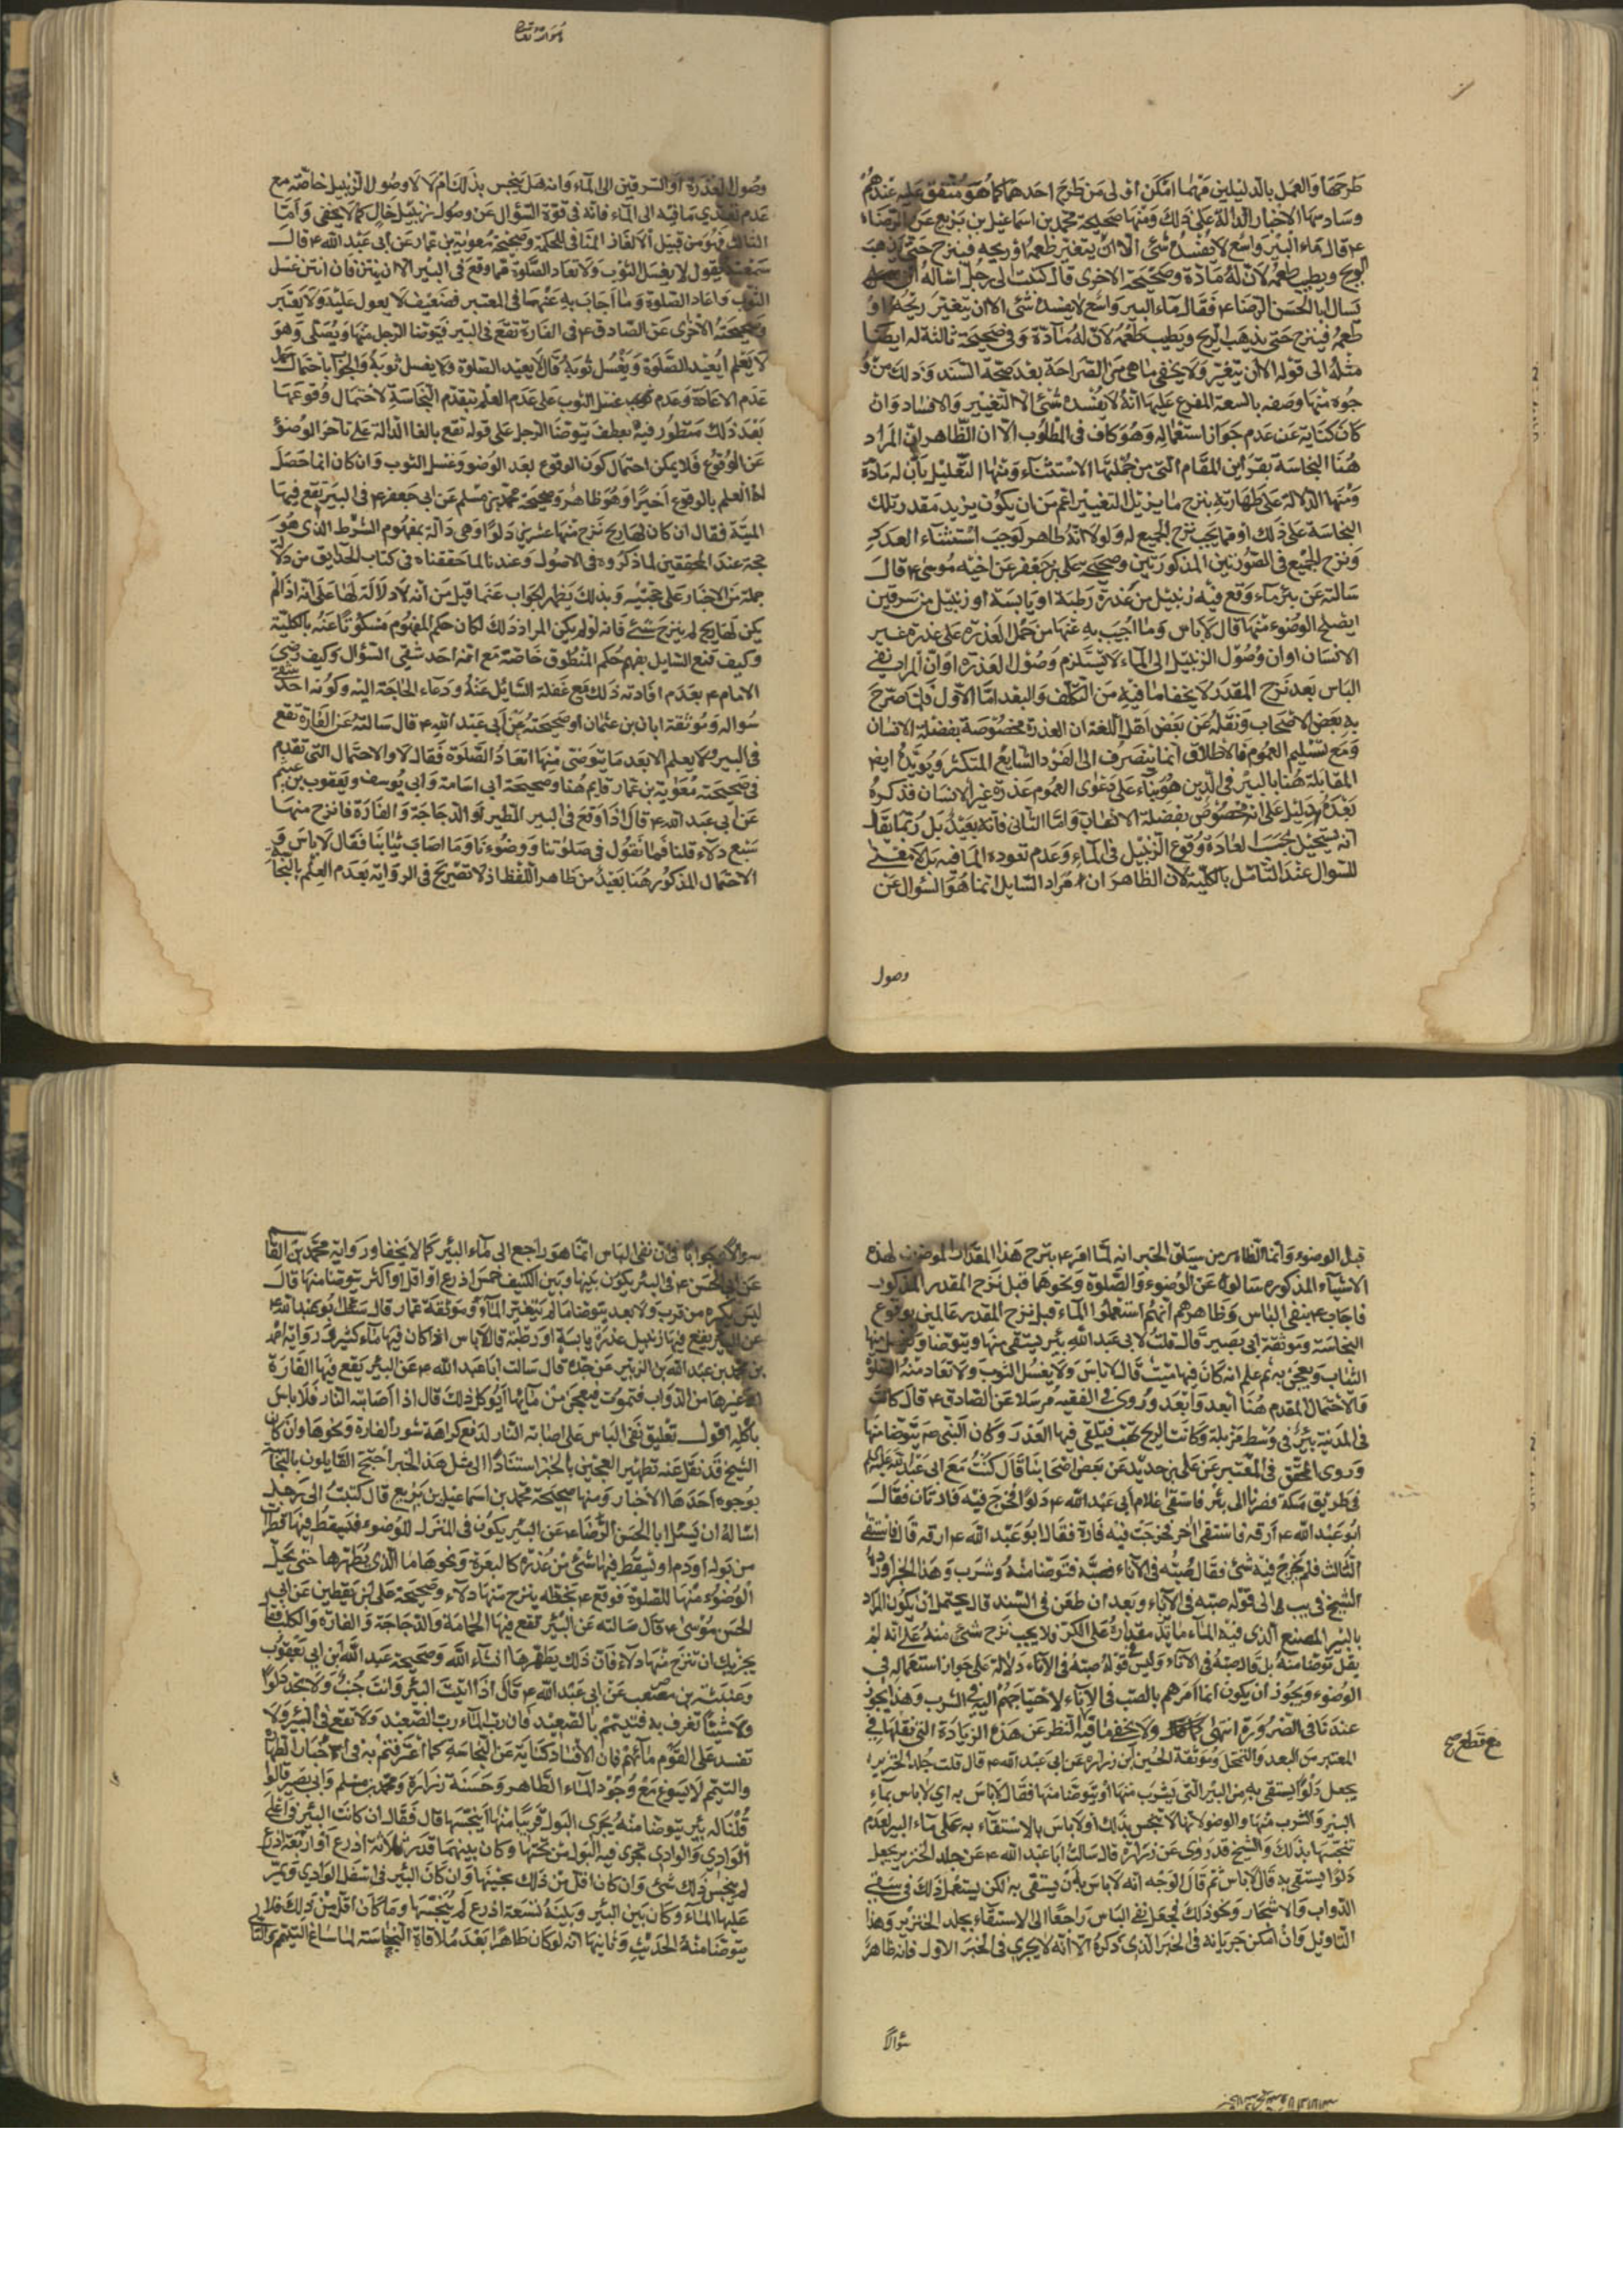 طرحهما والعمل بالدليلين مهما امكن اولى من طرح احدهما كما هو متفق عليه عندهم
وسادسها الاخبار الدالة على ذلك ومنها صحيحة محمد بن اسماعيل بن بزيع عن الرضا
ع قال ماء البئر واسع لا يفسده شئ الا ان يتغير طعمه او ريحه فينزح حتى يذهب
الريح ويطيب طعمه لان له مادة وصحيحته الاخرى قال كتبت الى رجل اساله ان
يسال ابا الحسن الرضا ع فقال ماء البير واسع لا يفسده شئ الا ان يتغير ريحه او
طعمه فينزح حتى يذهب الريح ويطيب طعمه لان له مادة وفى صحيحة ثالثة له ايضا
مثله الى قوله الا ان يتغير ولا يخفى ما هى من الصراحة بعد صحة السند وذلك من و
جوه منها وصفه بالسعة المفرع عليها انه لا يفسده شئ الا التغيير والافساد وان
كان كناية عن عدم جواز استعماله وهو كاف فى المطلوب الا ان الظاهر ان المراد
هنا النجاسة بقرائن المقام التى من جملتها الاستثناء ومنها التعليل بان له مادة
ومنها الدلالة على طهارته بنزح ما يزيل التغيير اعم من ان يكون يزيد مقدر تلك
النجاسة على ذلك او مما يجب نزح الجميع له ولولا انه طاهر لوجب استثناء العدد
ونزح الجميع فى الصورتين المذكورتين وصحيحة على بن جعفر عن اخيه موسى ع قال
سالته عن بئر ماء وقع فيه زنبيل من عذرة رطبة او يابسة او زنبيل من سرقين
ايصلح الوضوء منها قال لا باس وما اجيب به عنها من حمل العذرة على عذرة غير
الانسان او ان وصول الزنبيل الى الماء لا يستلزم وصول العذرة او ان المراد نفى
الباس بعد نزح المقدر لا يخفى ما فيه من التكلف والبعد اما الاول فلما صرح
به بعض الاصحاب ونقله عن بعض اهل اللغة ان العذرة مخصوصة بفضلة الانسان
ومع تسليم العموم فالاطلاق انما ينصرف الى الفرد الشايع المتكثر ويؤيده ايضا
المقابلة هنا بالسرقين هو بناء على دعوى العموم عذرة غير الانسان فذكره
بعده دليل على انه مخصوص بفضلة الانسان واما الثانى فانه بعيد بل ربما يقال
انه يستحيل بحسب العادة وقوع الزنبيل فى الماء وعدم نفوذه الى ما فيه بل لا معنى
للسوال عند التامل بالكلية لان الظاهر ان مراد السايل انما هو السؤال عن
وصول
وصول العذرة او السرقين الى الماء وانه هل ينجس بذلك ام لا لا وصول الزنبيل خاصة مع
عدم تعدى ما فيه الى الماء فانه فى قوة السؤال عن وصول زنبيل خال كما لا يخفى واما
الثالث فهو من قبيل الالغاز المنافى للحكمة وصحيحة معوية بن عمار عن ابى عبد الله ع قال
سمعته يقول لا يغسل الثوب ولا تعاد الصلوة مما وقع فى البير الا ان ينتن فان انتن غسل
الثوب واعاد الصلوة وما اجاب به عنها فى المعتبر فضعيف لا يعول عليه ولا يعتبر
وصحيحته الاخرى عن الصادق ع فى الفارة تقع فى البير فيتوضا الرجل منها ويصلى وهو
لا يعلم ايعيد الصلوة ويغسل ثوبه قال لا يعيد الصلوة ولا يغسل ثوبه والجواب باحتمال
عدم الاعادة وعدم غسل الثوب على عدم العلم بتقدم النجاسة لاحتمال وقوعها
بعد ذلك منظور فيه بعطف يتوضا الرجل على قوله تقع بالفا الدالة على تاخر الوضوء
عن الوقوع فلا يمكن احتمال كون الوقوع بعد الوضوء وغسل الثوب وان كان انما حصل
له العلم بالوقوع اخيرا وهو ظاهر وصحيحة محمد بن مسلم عن ابى جعفر ع فى البير تقع فيها
الميتة فقال ان كان لها ريح نزح منها عشرين دلوا وهى دالة بمفهوم الشرط الذى هو
حجة عند المحققين لما ذكروه فى الاصول وعندنا لما حققناه فى كتاب الحدايق من دلالة
جملة من الاخبار على حجيته وبذلك يظهر الجواب عما قيل من انه لا دلالة لها على انه اذا لم
يكن لها ريح لم ينزح شئ فانه لو لم يكن المراد ذلك لكان حكم المفهوم مسكوتا عنه بالكلية
وكيف قنع السايل بفهم حكم المنطوق خاصة مع انه احد شقى السؤال وكيف رضى
الامام ع بعدم افادته ذلك مع غفلة السائل عنه ودعاء الحاجة اليه وكونه احد شقى
سواله وموثقة ابان بن عثمان او صحيحته عن ابى عبد الله ع قال سالته عن الفارة تقع
فى البير ولا يعلم الا بعد ما يتوضى منها اتعاد الصلوة فقال لا والاحتمال التى تقدم
فى صحيحة معوية بن عمار قايم هنا وصحيحة ابى اسامة وابى يوسف ويعقوب بن عيثم
عن ابى عبد الله ع قال اذا وقع فى البير الطير او الدجاجة والفارة فانزح منها
سبع دلاء قلنا فما تقول فى صلوتنا ووضوءنا وما اصاب ثيابنا فقال لا باس به و
الاحتمال المذكور هنا بعيد من ظاهر اللفظ اذ لا تصريح فى الرواية بعدم العلم بالنجاسة
قبل الوضوء وانما الظاهر من سياق الخبر انه لما امر ع بنزح هذا المقدار الموضوع لهذه
الاشياء المذكوره سالوه عن الوضوء والصلوة ونحوهما قبل نزح المقدر المذكور
فاجاب ع بنفى الباس وظاهرهم انهم استعملوا الماء قبل نزح المقدر عالمين بوقوع
النجاسة وموثقة ابى بصير قال قلت لابى عبد الله بئر يستقى منها ويتوضا وغسل منها
الثياب ويعجن به ثم علم انه كان فيها ميت قال لا باس ولا يغسل الثوب ولا تعاد منه الصلوة
فالاحتمال المقدم هنا ابعد وابعد وروى فى الفقيه مرسلا عن الصادق ع قال كانت
فى المدينة بئر فى وسط مزبلة وكانت الريح تهب فتلقى فيها العذر وكان النبى ص يتوضا منها
وروى المحقق فى المعتبر عن على بن حديد عن بعض اصحابنا قال كنت مع ابى عبد الله عليه السلام
فى طريق مكة فصرنا الى بئر فاستقى غلام ابى عبد الله ع دلوا فخرج فيه فارتان فقال
ابو عبد الله ع ارقه فاستقى اخر فخرجت فيه فارة فقال ابو عبد الله ع ارقه قال فاستقى
الثالث فلم يخرج فيه شئ فقال صبه فى الاناء فصبه فتوضا منه وشرب وهذا الخبر اورده
الشيخ فى يب الى قوله صبه فى الاناء وبعد ان طعن فى السند قال يحتمل ان يكون المراد
بالبير المصنع الذى فيه الماء ما يزيد مقداره على الكر ولا يجب نزح شئ منه على انه لم
يقل توضا منه بل قال صبه فى الاناء وليس فى قوله صبه فى الاناء دلالة على جواز استعماله فى
الوضوء ويجوز ان يكون انما امرهم بالصب فى الاناء لاحتياجهم اليه فى الشرب وهذا يجوز
عندنا فى الضرورة انتهى ولا يخفى ما فيه النظر عن هذه الزيادة التى نقلها فى
مع قطع صح
المعتبر من البعد والتمحل وموثقة الحسين ابن زرارة عن ابى عبد الله ع قال قلت جلد الخنزير
يجعل دلوا يستقى به من البئر التى يشرب منها او يتوضا منها فقال لا باس به اى لا باس بماء
البير والشرب منها والوضو لانها لا تنجس بذلك او لا باس بالاستقاء به على ماء البير لعدم
تنجسها بذلك والشيخ قد روى عن زرارة قال سالت ابا عبد الله ع عن جلد الخنزير يجعل
دلوا يستقى به قال لا باس ثم قال الوجه انه لا باس بان يستقى به لكن يستعمل ذلك فى سقى
الدواب والاشجار ونحو ذلك فجعل نفى الباس راجعا الى الاستقاء بجلد الخنزير وهذا
التاويل وان امكن جريانه فى الخبر الذى ذكره الا انه لا يجرى فى الخبر الاول فانه ظاهر
سؤالا
سؤالا وجوابا فى ان نفى الباس انما هو راجع الى ماء البئر كما لا يخفى ورواية محمد بن القاسم
عن ابى الحسن ع فى البئر يكون بينها وبين الكنيف خمس اذرع او اقل او اكثر يتوضا منها قال
ليس يكره من قرب ولا بعد يتوضا ما لم يتغير الماء وموثقة عمار قال سئل ابو عبد الله ع
عن البئر يقع فيها زنبيل عذرة يابسة او رطبة قال لا باس اذا كان فيها ماء كثير ورواية احمد
بن محمد بن عبد الله بن الزبير عن جده قال سالت ابا عبد الله ع عن البئر يقع فيها الفارة
او غيرها من الدواب فتموت فيعجن من مائها ايؤكل ذلك قال اذا اصابته النار فلا باس
باكله اقول تعليق نفى الباس على اصابة النار لدفع كراهة سور الفارة ونحوها وان كان
الشيخ قد نقل عنه تطهير العجين بالخبز استنادا الى مثل هذا الخبر احتج القايلون بالنجاسة
بوجوه احدها الاخبار ومنها صحيحة محمد بن اسماعيل بن بزيع قال كتبت الى رجل
اساله ان يسئل ابا الحسن الرضا ع عن البئر يكون فى المنزل للوضوء فيسقط فيها قطرات
من بول او دم او يسقط فيها شئ من عذرة كالبعرة ونحوها ما الذى يطهرها حتى يحل
الوضوء منها للصلوة فوقع ع بخطه ينزح منها دلاء وصحيحة على بن يقطين عن ابى
الحسن موسى ع قال سالته عن البئر تقع فيها الحمامة والدجاجة والفارة والكلب فقال
يجزيك ان تنزح منها دلاء فان ذلك يطهرها انشاء الله وصحيحة عبد الله ابن ابى يعفور
وعنبسة بن مصعب عن ابى عبد الله ع قال اذا اتيت البئر وانت جنب ولا تجد دلوا
ولا شيئا تغرف به فتيمم بالصعيد فان رب الماء رب الصعيد ولا تقع فى البير ولا
تفسد على القوم مائهم فان الافساد كناية عن النجاسة كما اعترفتم به فى اخبار الطهارة
والتيمم لا يسوغ مع وجود الماء الطاهر وحسنة زرارة ومحمد بن مسلم وابى بصير قالوا
قلنا له بئر يتوضا منه يجرى البول قريبا منها اينجسها قال فقال ان كانت البئر فى اعلى
الوادى والوادى يجرى فيه البول من تحتها وكان بينهما قدر ثلاثة اذرع او اربعة اذرع
لم ينجس ذلك شئ وان كان اقل من ذلك نجسها وان كان البئر فى اسفل الوادى ويمر
عليها الماء وكان بين البئر وبينه تسعة اذرع لم ينجسها وما كان اقل من ذلك فلا
يتوضا منه الحديث وثانيها انه لو كان طاهرا بعد ملاقاة النجاسة لما ساغ التيمم والتالى